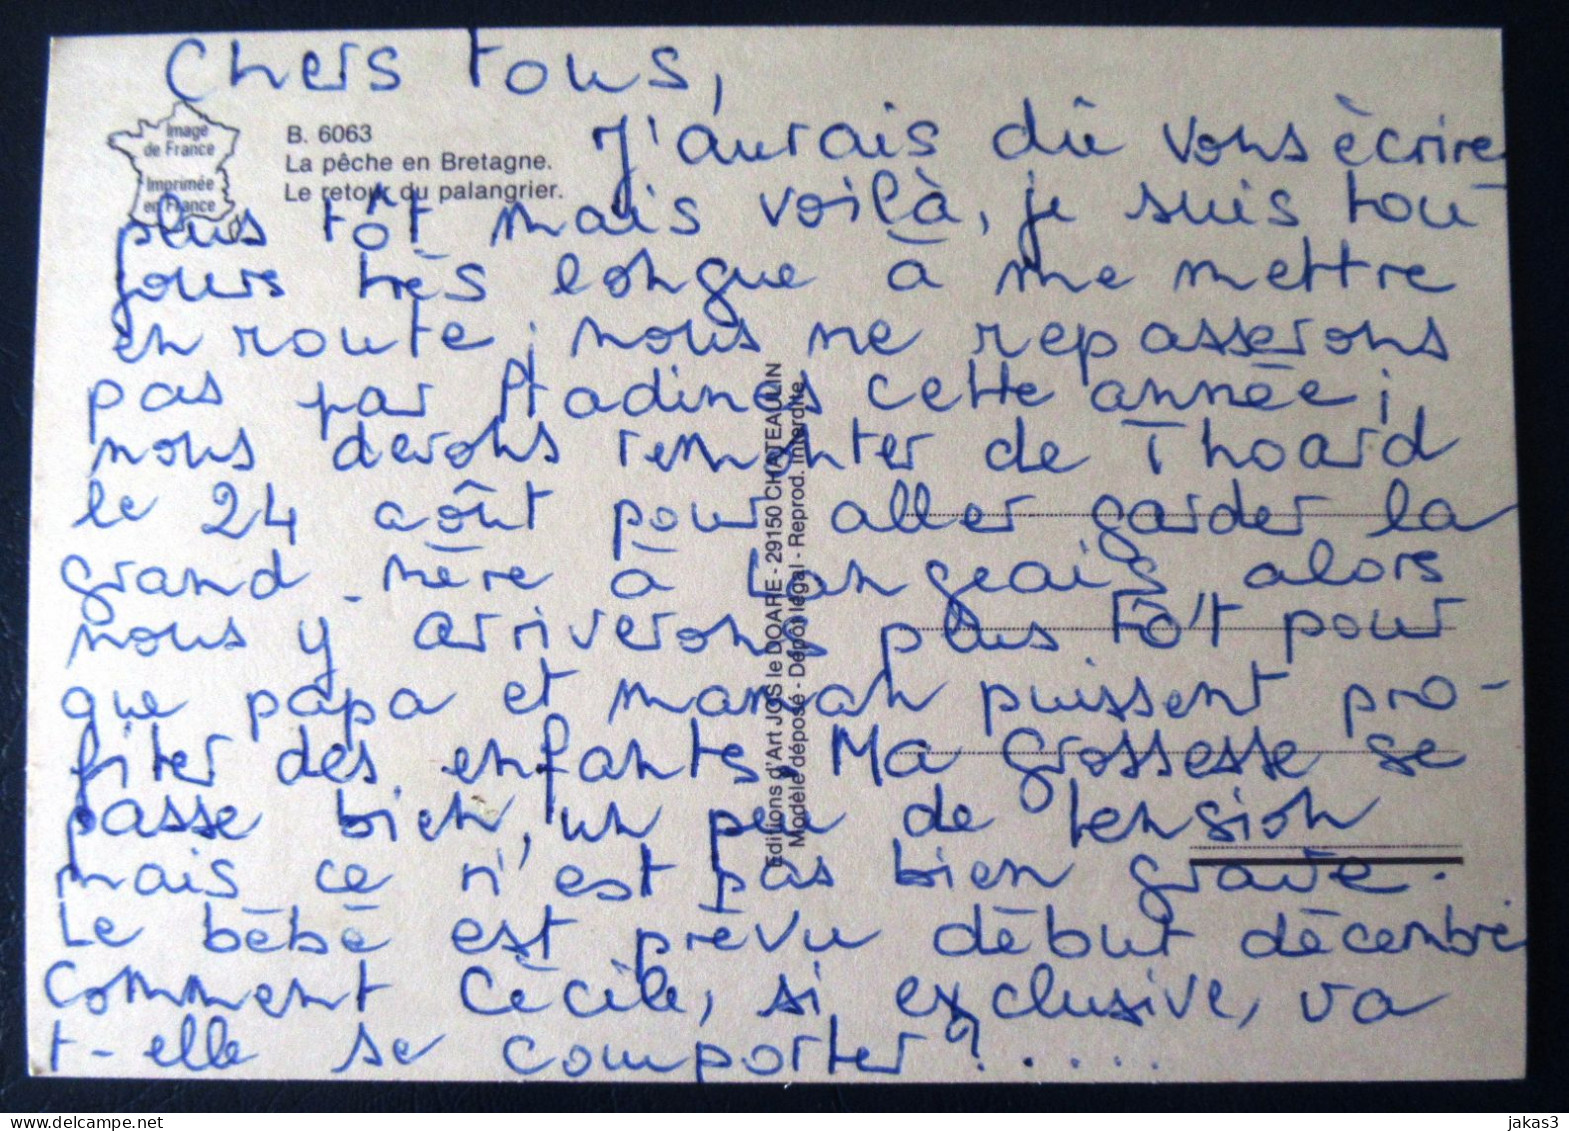 Chers tous,
Image
de France
Imprimée
en France
B. 6063
La pêche en Bretagne.
Le retour du palangrier.
J'aurais dû vous écrire
plus tôt mais voilà, je suis tou-
jours très longue à me mettre
en route ; nous ne repasserons
pas par cette année ;
nous devons remonter de Thoard
le 24 août pour aller garder la
grand-mère à Langeais, alors
nous y arriverons plus tôt pour
que papa et maman puissent pro-
fiter des enfants. Ma grossesse se
passe bien, un peu de tension
mais ce n'est pas bien grave.
Le bébé est prévu début décembre
comment Cécile, si exclusive, va
t-elle se comporter ? .....
Editions d'Art JOS le DOARE - 29150 CHATEAULIN
Modèle déposé - Dépôt légal - Reprod. interdite
jakas3